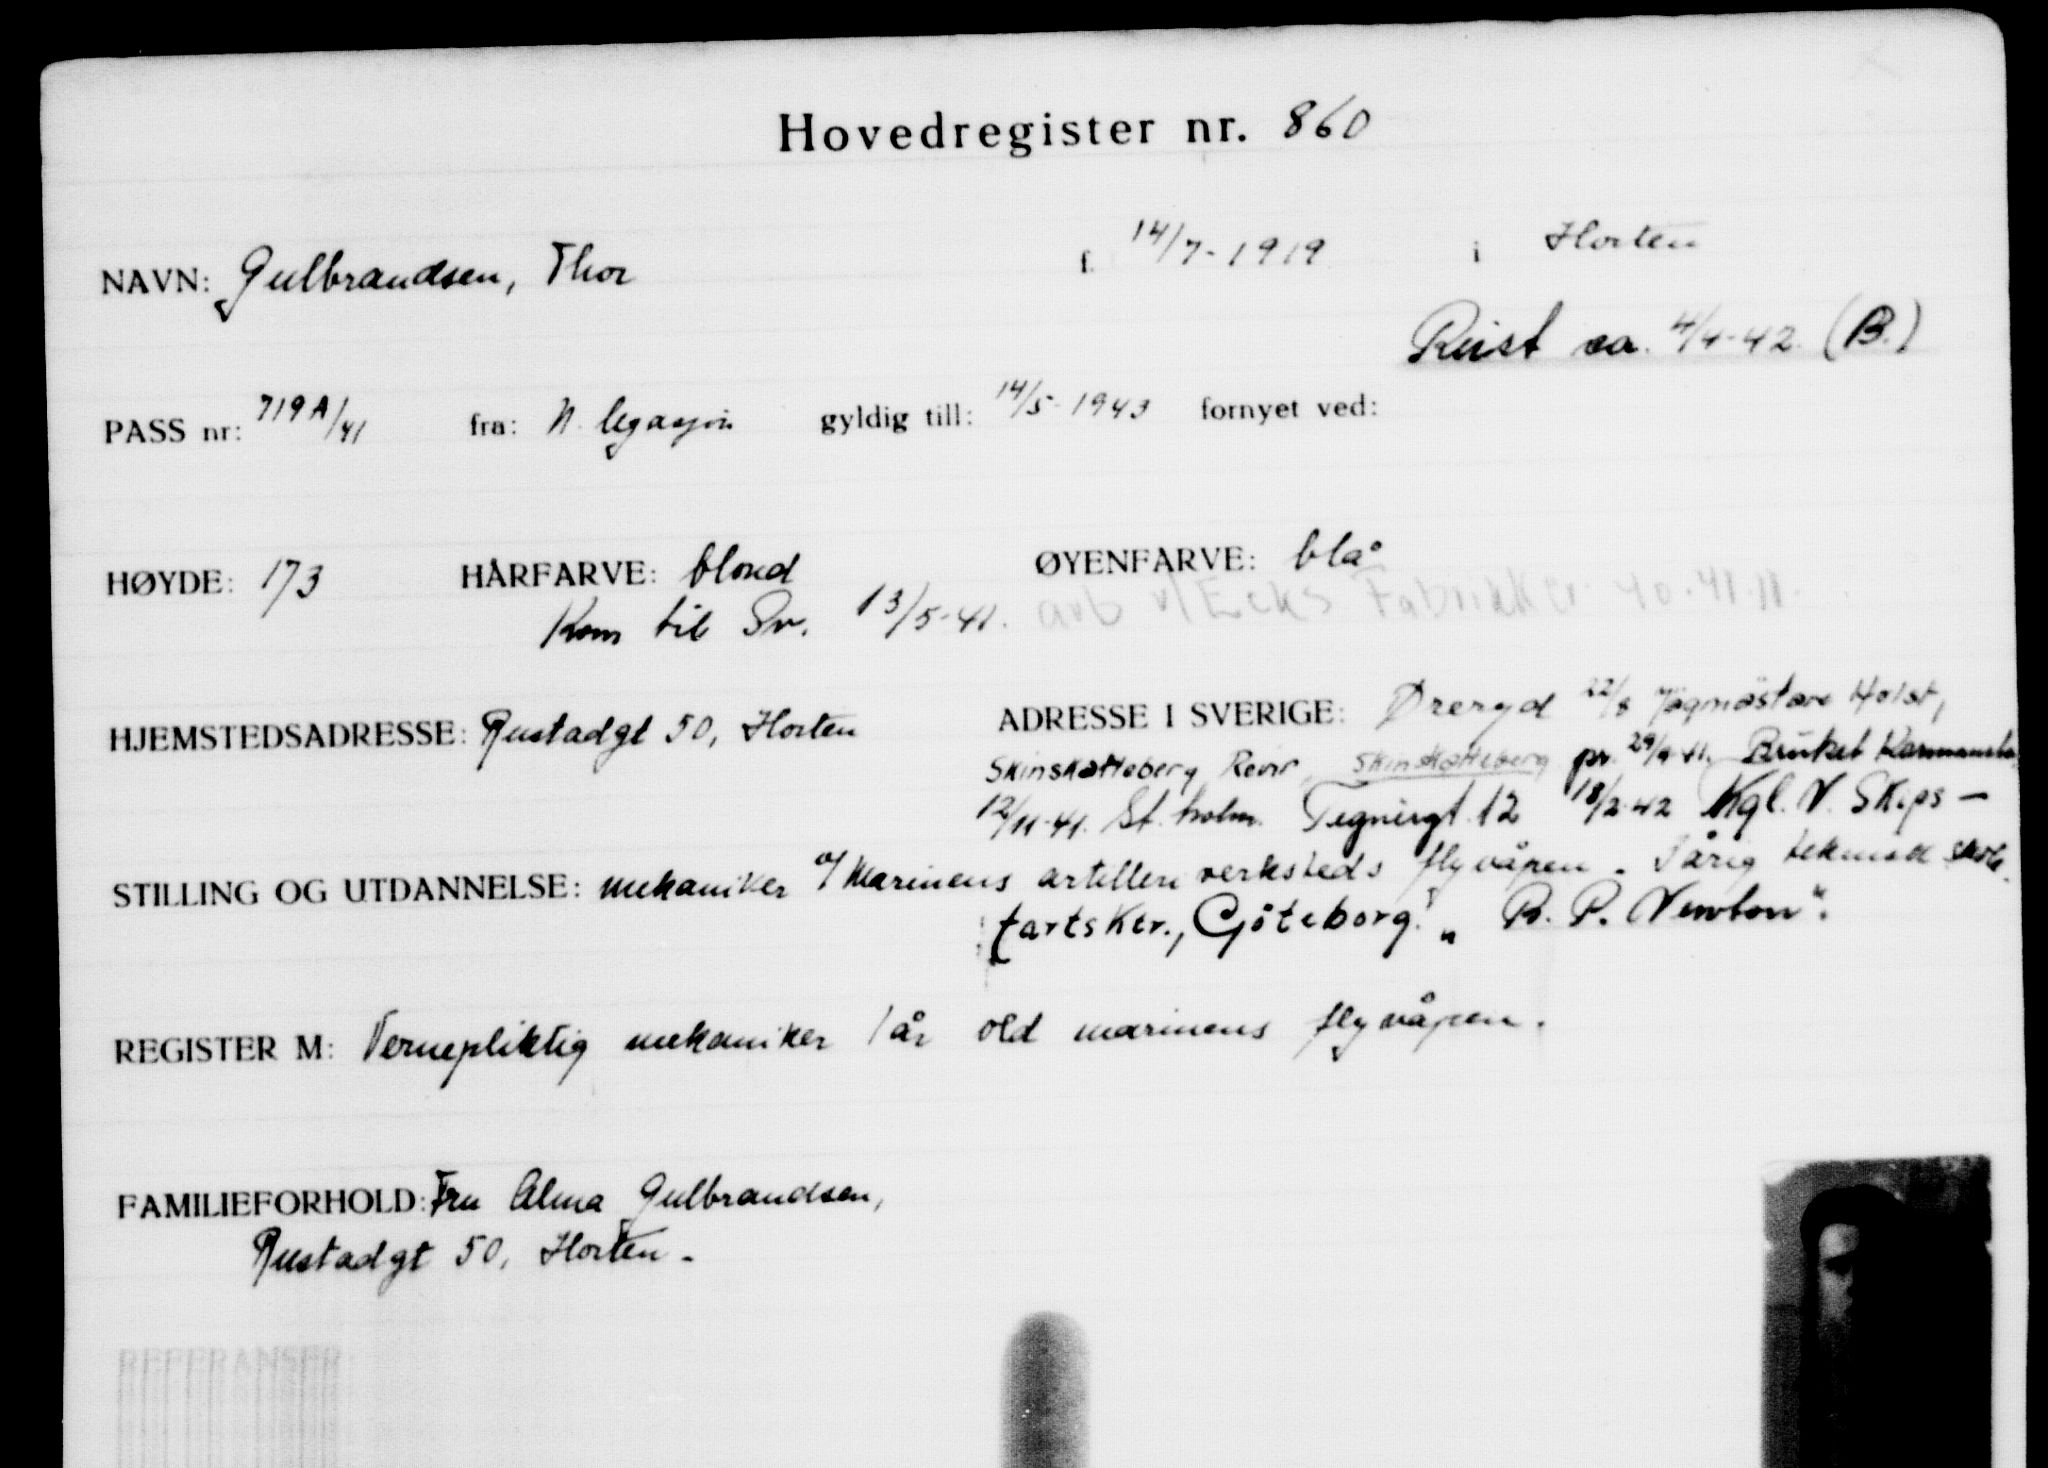 Hovedregister nr. 860
NAVN: Gulbrandsen, Thor f. 14/7-1919 i Horten
Reist ca. 4/4-42. (B.)
PASS nr: 719A/41 fra: N. legasjon gyldig till: 14/5-1943 fornyet ved:
HØYDE: 173 HÅRFARVE: blond ØYENFARVE: blå
Kom til Sv. 13/5-41. arb v/Ecks Fabrikker 40.41.11.
HJEMSTEDSADRESSE: Rustadgt 50, Horten ADRESSE I SVERIGE: Øreryd 22/8 Jägmästare Holst,
Skinskatteberg Revir, Skinskatteberg pr. 29/9-41. Bruket
12/11-41. St.holm. Tegnérgt. 12 18/2-42 Kgl. N. Skips-
STILLING OG UTDANNELSE: mekaniker v/ Marinens artilleri verksteds flyvåpen. årig teknisk skole.
fartsktr., Göteborg. „B. P. Newton".
REGISTER M: Vernepliktig mekaniker 1 år ved marinens flyvåpen.
FAMILIEFORHOLD: Fru Alma Gulbrandsen,
Rustadgt 50, Horten.
REFERANSER